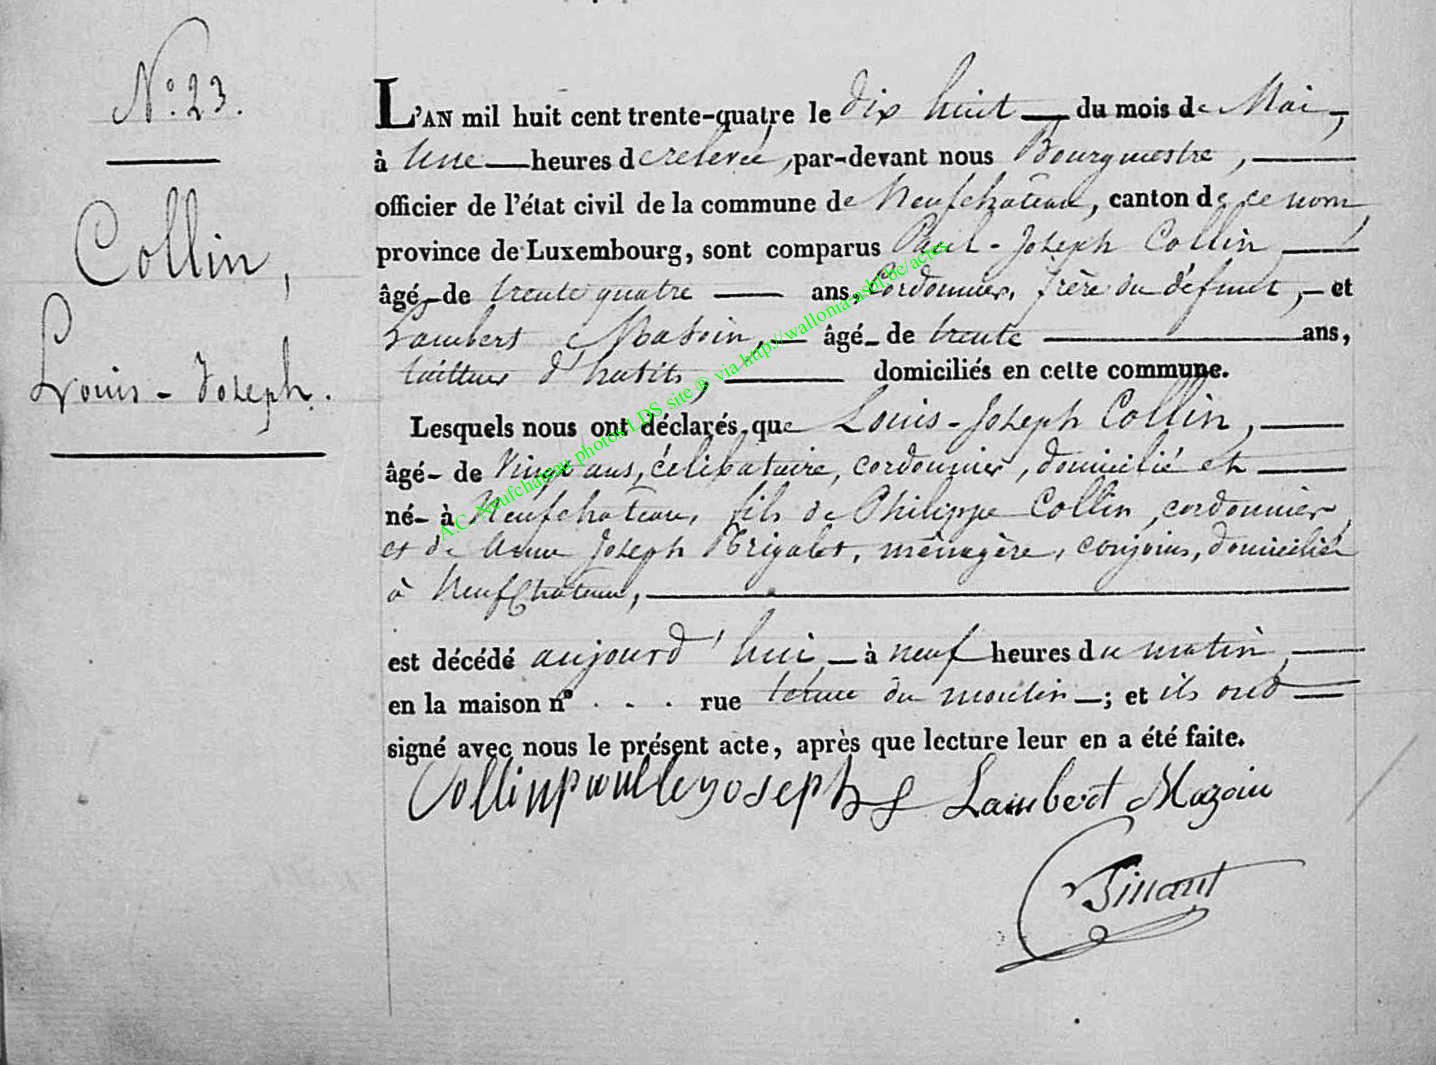 N°. 23.
Collin,
Louis-Joseph.
L'AN mil huit cent trente-quatre le dix huit — du mois de Mai,
à Une — heures de relevée, par-devant nous Bourgmestre, —
officier de l'état civil de la commune de Neufchateau, canton de ce nom,
province de Luxembourg, sont comparus Paul-Joseph Collin, —
âgé de trente quatre — ans, Cordonnier, frère du défunt, - et
Lambert Masoin, — âgé de trente — ans,
tailleur d'habits, — domiciliés en cette commune.
Lesquels nous ont déclarés que Louis-Joseph Collin, —
âgé de Vingt ans, célibataire, cordonnier, domicilié et —
né à Neufchateau, fils de Philippe Collin, cordonnier,
et de Anne Joseph, ménagère, conjoins, domiciliés
à Neufchateau, —
est décédé aujourd'hui, — à neuf heures du matin, —
en la maison n° . . . rue du moulin —; et ils ont —
signé avec nous le présent acte, après que lecture leur en a été faite.
Collin Joseph Lambert Mazoin
AC Neufchateau photos LDS site ® via http://wallonia-asbl.be/actes